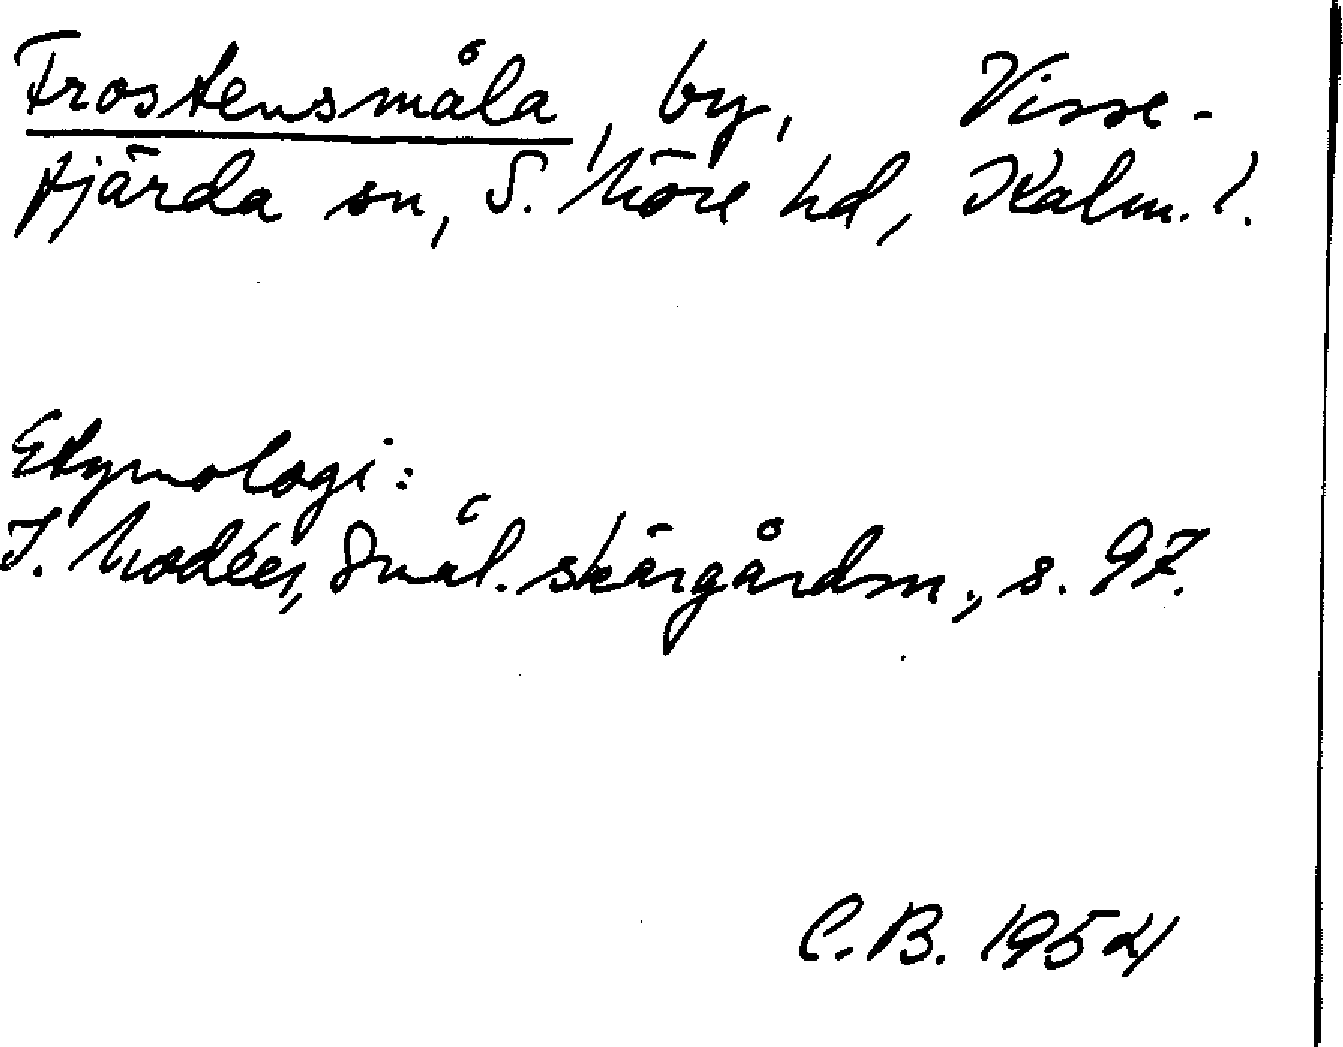 Frostensmåla, by, Visse-
fjärda sn, S. Möre hd, Kalm. l.
Etymologi:
I. Modéer, Smål. skärgårdsn., s. 97.
C.B. 1954